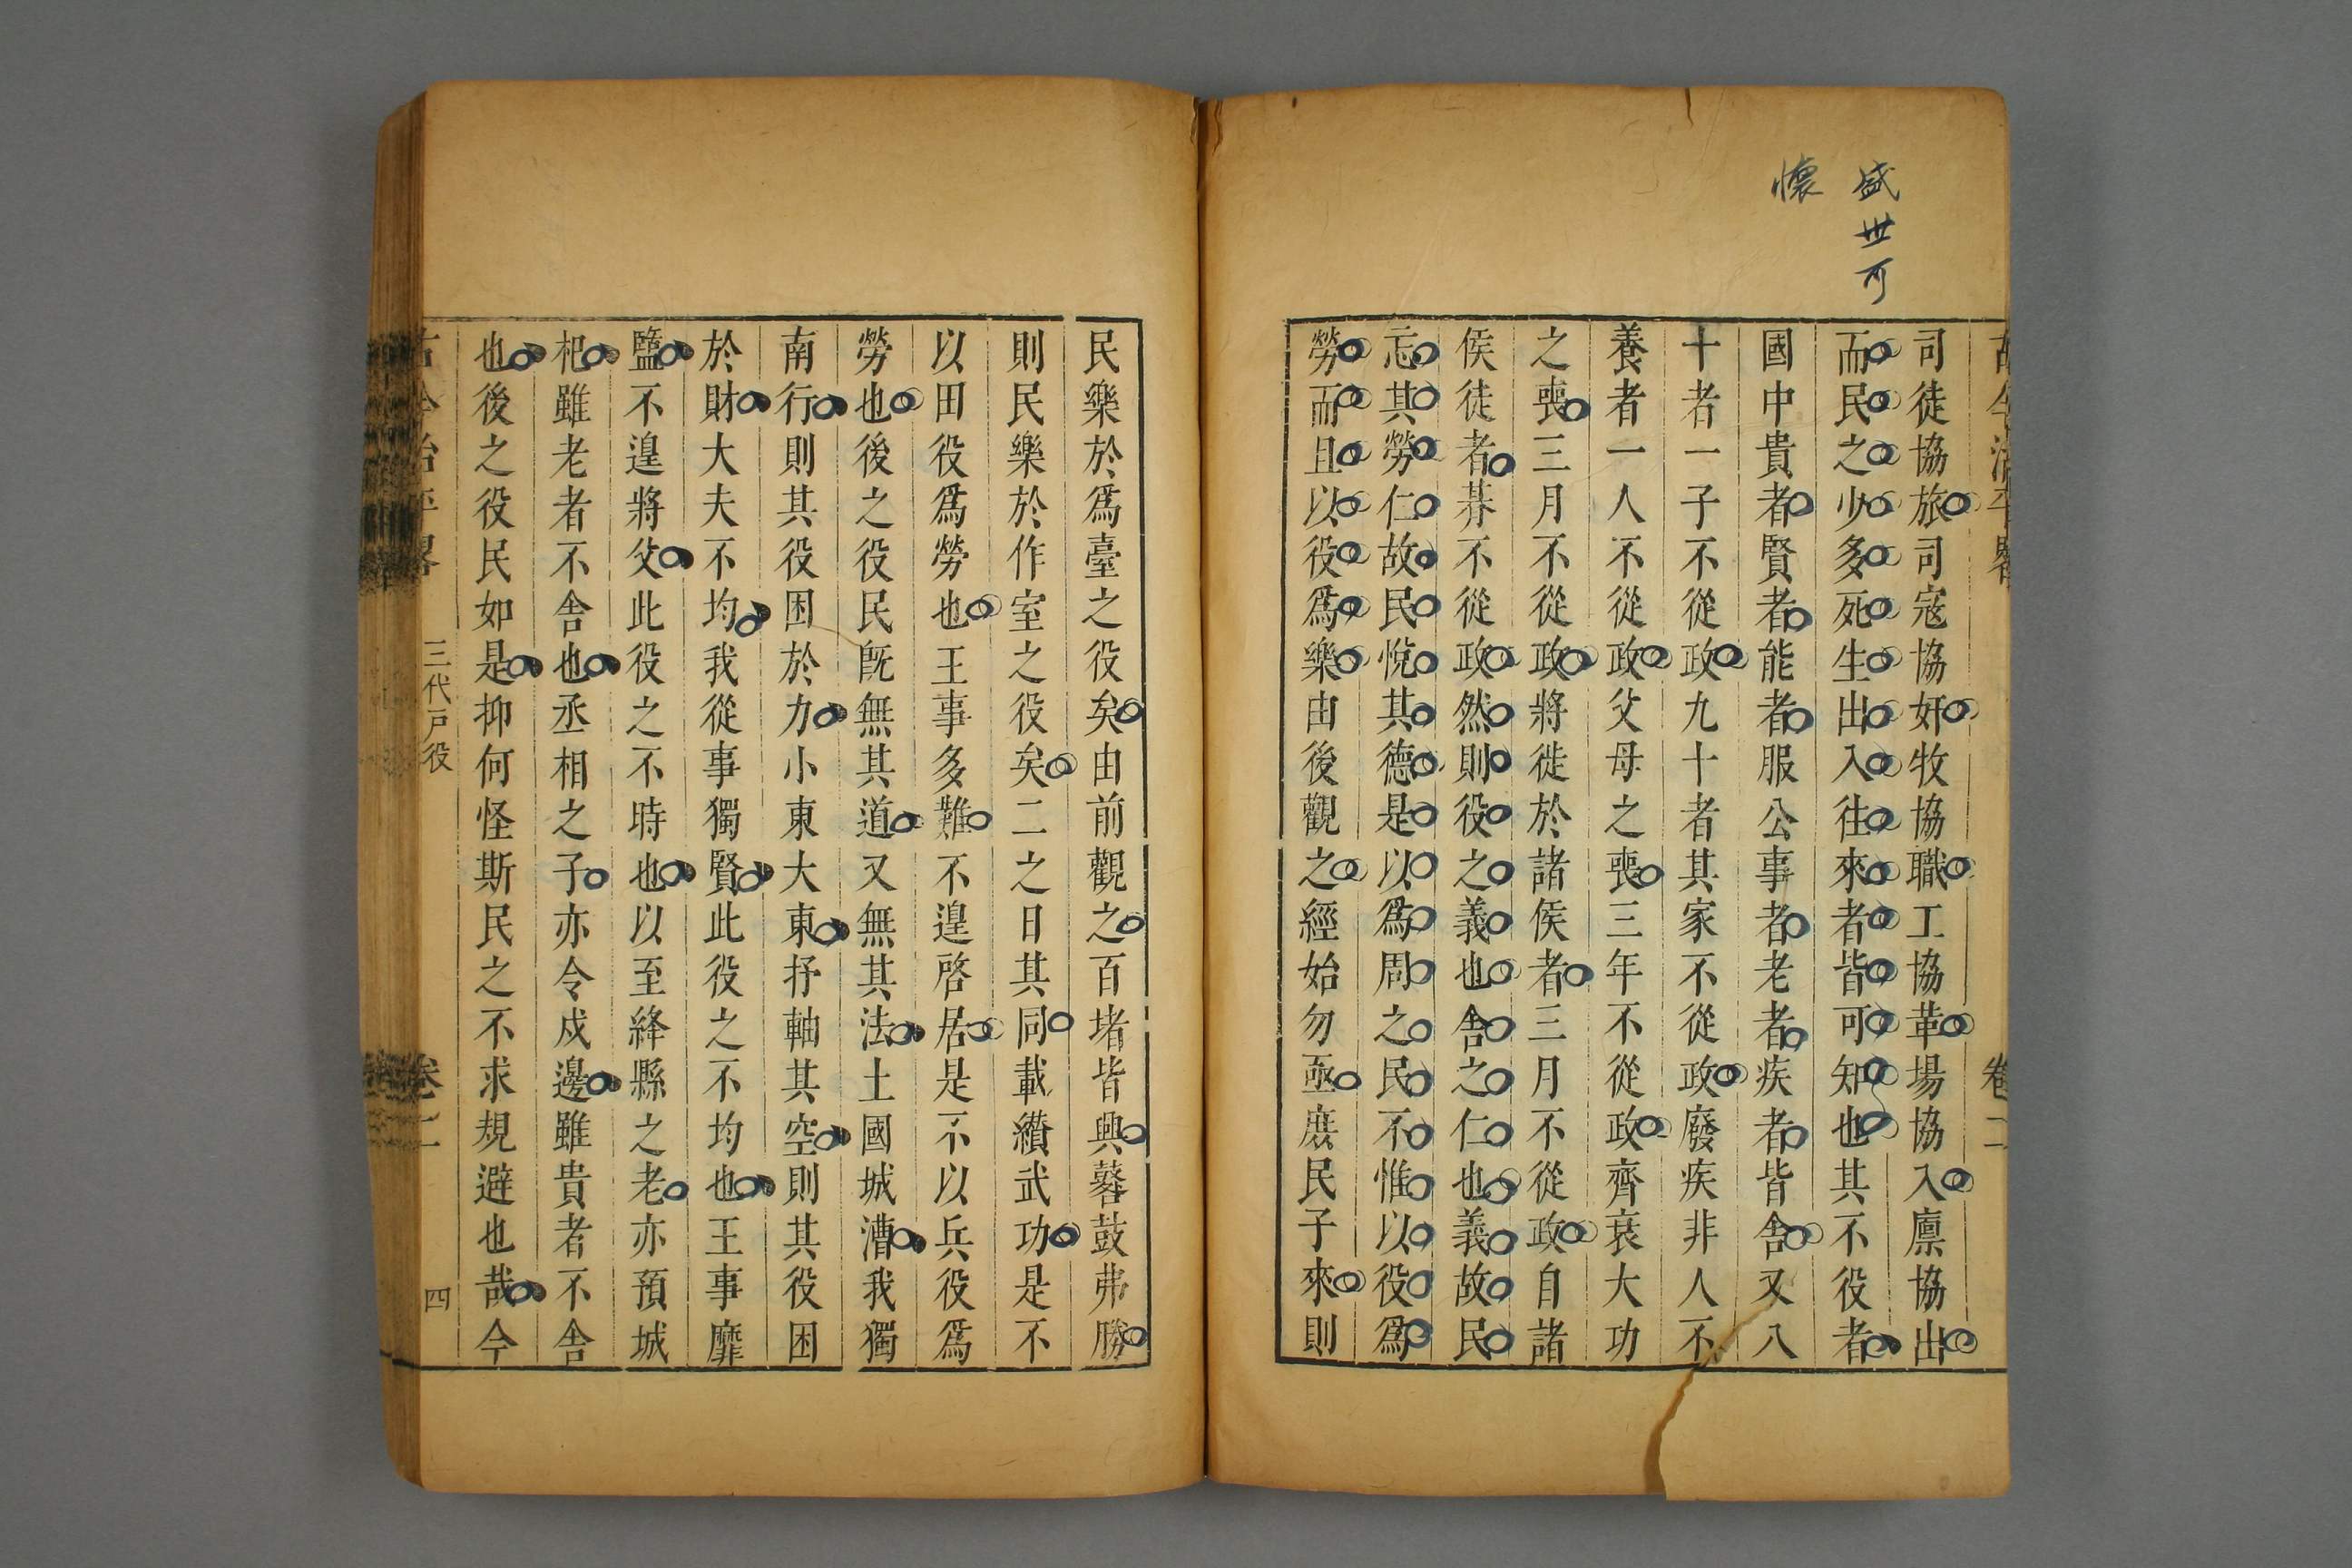 盛世可
懷
古今治平畧 卷二
司徒協旅司寇協奸牧協職工協革場協入廩協出
而民之少多死生出入往來者皆可知也其不役者
國中貴者賢者能者服公事者老者疾者皆舍又八
十者一子不從政九十者其家不從政廢疾非人不
養者一人不從政父母之喪三年不從政齊衰大功
之喪三月不從政將徙於諸侯者三月不從政自諸
侯徙者朞不從政然則役之義也舍之仁也義故民
忘其勞仁故民悅其德是以爲周之民不惟以役爲
勞而且以役爲樂由後觀之經始勿亟庶民子來則
民樂於爲臺之役矣由前觀之百堵皆興鼛鼓弗勝
則民樂於作室之役矣二之日其同載纘武功是不
以田役爲勞也王事多難不遑啓居是不以兵役爲
勞也後之役民旣無其道又無其法土國城漕我獨
南行則其役困於力小東大東抒軸其空則其役困
於財大夫不均我從事獨賢此役之不均也王事靡
盬不遑將父此役之不時也以至絳縣之老亦預城
杞雖老者不舍也丞相之子亦令戍邊雖貴者不舍
也後之役民如是抑何怪斯民之不求規避也哉今
古今治平畧 三代戸役 卷二 四